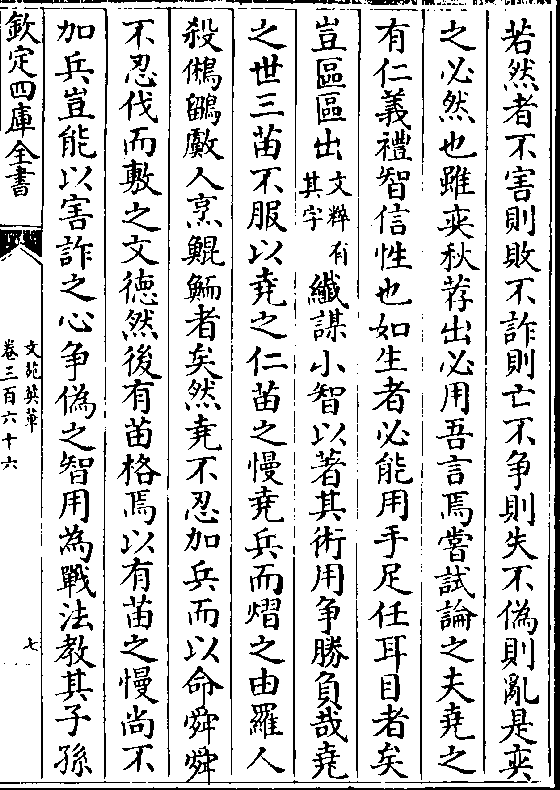 若然者不害則敗不詐則亡不争則失不偽則亂是奕
之必然也雖奕秋荐出必用吾言焉嘗試論之夫堯之
有仁義禮智信性也如生者必能用手足任耳目者矣
豈區區出文粹有其字纎謀小智以著其術用争勝負哉堯
之世三苗不服以堯之仁苗之慢堯兵而熠之由羅人
殺鵂鶹䱷人烹鯤鮞者矣然堯不忍加兵而以命舜舜
不忍伐而敷之文德然後有苗格焉以有苗之慢尚不
加兵豈能以害詐之心争偽之智用為戰法教其子孫
欽定四庫全書
文苑英華
卷三百六十六
七